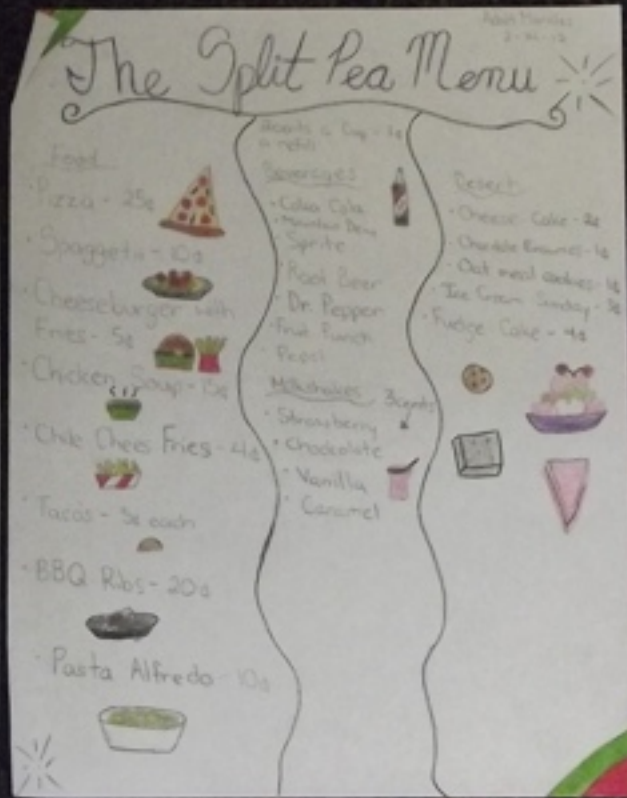 The Split Pea Menu
Food
Pizza - 25¢
Spaggeti - 10¢
Cheeseburger with
Fries - 5¢
Chicken Soup - 15¢
Chile Chees Fries - 4¢
Tacos - 5¢ each
BBQ Ribs - 20¢
Pasta Alfredo - 10¢
a refill
Beverages
Coka Cola
Mountain Dew
Sprite
Root Beer
Dr. Pepper
Fruit Punch
Pepsi
Milkshakes 3cents
Strawberry
Chocolate
Vanilla
Caramel
Desert
Cheese Cake - 2¢
Brownies
Oat meal cookies
Ice Cream Sunday
Fudge Cake - 4¢